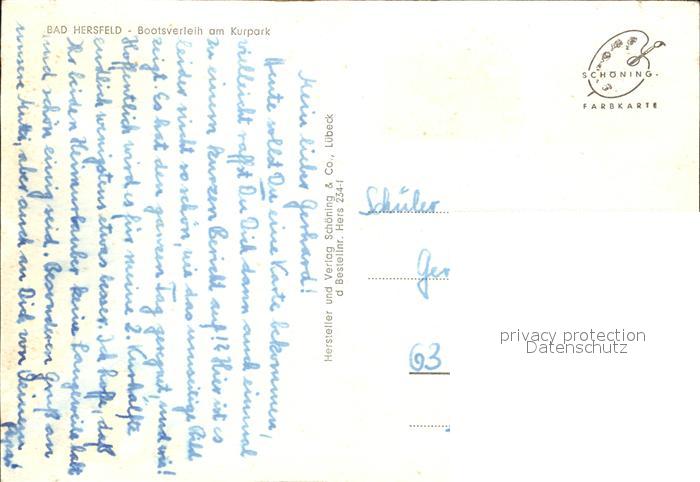 BAD HERSFELD - Bootsverleih am Kurpark
Mein lieber Gerhard!
Heute sollst Du eine Karte bekommen,
vielleicht raffst Du Dich dann auch einmal
zu einem kurzen Bericht auf!? Hier ist es
leider nicht so schön, wie das umseitige Bild
zeigt. Es hat den ganzen Tag geregnet, und wie!
Hoffentlich wird es für meine 2. Kurhälfte
endlich wenigstens etwas besser. Ich hoffe, daß
Ihr beiden keine Langeweile habt
und schön einig seid. Besonderen Gruß an
unsere Mutti, aber auch an Dich von Deinem
Papi
Hersteller und Verlag Schöning & Co., Lübeck
d Bestellnr. Hers 234-f
SCHÖNING-
FARBKARTE
Schüler
Ger
63
privacy protection
Datenschutz